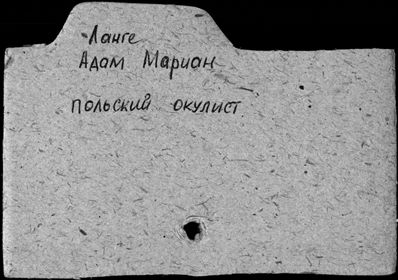 Ланге
Адам Мариан
польский окулист